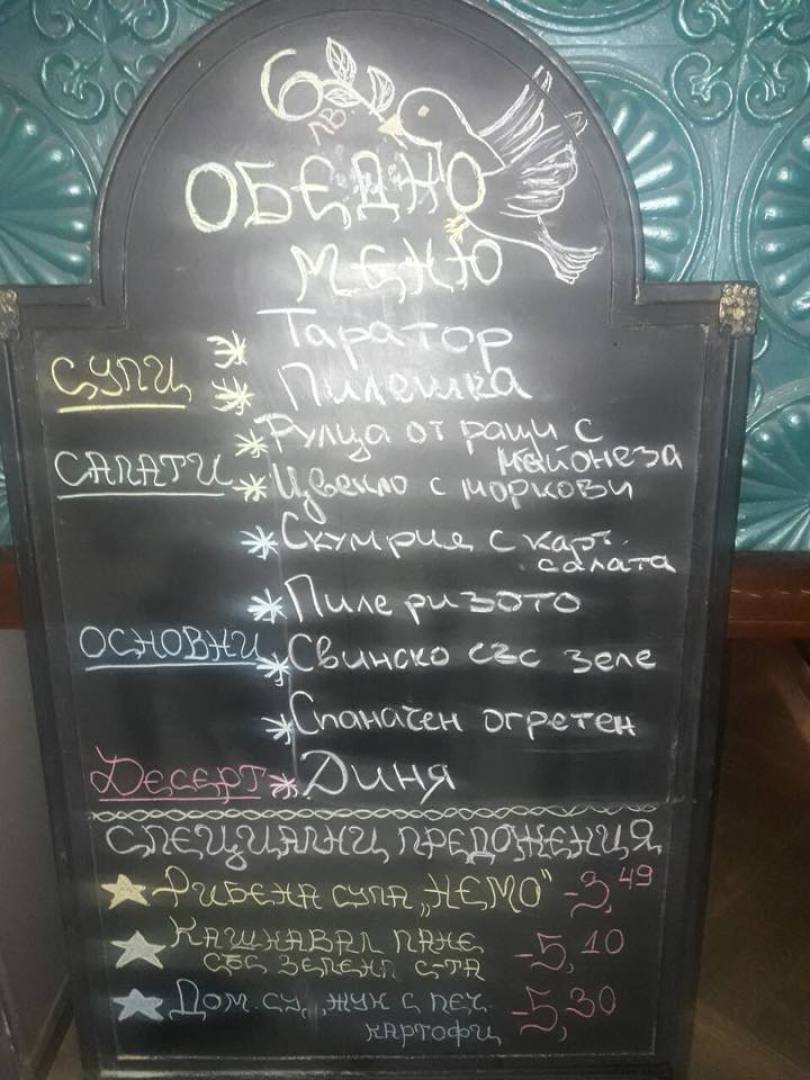 6 лв
ОБЕДНО
МЕНЮ
СУПИ
Таратор
Пилешка
САЛАТИ
Рулца от раци с
майонеза
Цвекло с моркови
ОСНОВНИ
Скумрия с карт.
салата
Пиле ризото
Свинско със зеле
Спаначен огретен
Десерт
Диня
СПЕЦИАЛНИ ПРЕДОЖЕНИЯ
РИБЕНА СУПА „НЕМО" -3,49
КАШКАВАЛ ПАНЕ -5,10
СЪС ЗЕЛЕНА С-ТА
ДОМ. С ПЕЧ. -5,30
КАРТОФИ